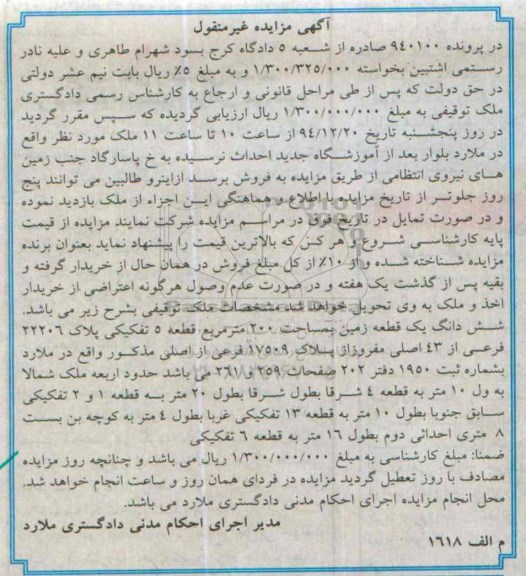 آگهی مزایده غیرمنقول
در پرونده ۹۴۰۱۰۰ صادره از شعبه ۵ دادگاه کرج بسود شهرام طاهری و علیه نادر
رستمی اشتبین بخواسته ۱/۳۰۰/۳۲۵/۰۰۰ و به مبلغ ۵٪ ریال بابت نیم عشر دولتی
در حق دولت که پس از طی مراحل قانونی و ارجاع به کارشناس رسمی دادگستری
ملک توقیفی به مبلغ ۱/۳۰۰/۰۰۰/۰۰۰ ریال ارزیابی گردیده که سپس مقرر گردید
در روز پنجشنبه تاریخ ۹۴/۱۲/۲۰ از ساعت ۱۰ تا ساعت ۱۱ ملک مورد نظر واقع
در ملارد بلوار بعد از آموزشگاه جدید احداث نرسیده به خ پاسارگاد جنب زمین
های نیروی انتظامی از طریق مزایده به فروش برسد ازاینرو طالبین می توانند پنج
روز جلوتر از تاریخ مزایده با اطلاع و هماهنگی این اجراء از ملک بازدید نموده
و در صورت تمایل در تاریخ فوق در مراسم مزایده شرکت نمایند مزایده از قیمت
پایه کارشناسی شروع و هر کس که بالاترین قیمت را پیشنهاد نماید بعنوان برنده
مزایده شناخته شده و از ۱۰٪ از کل مبلغ فروش در همان حال از خریدار گرفته و
بقیه پس از گذشت یک هفته و در صورت عدم وصول هرگونه اعتراضی از خریدار
اخذ و ملک به وی تحویل خواهد شد مشخصات ملک توقیفی بشرح زیر می باشد.
شش دانگ یک قطعه زمین بمساحت ۲۰۰ مترمربع قطعه ۵ تفکیکی پلاک ۲۲۲۰۶
فرعی از ۴۳ اصلی مفروزاز پلاک ۱۷۵۰۹ فرعی از اصلی مذکور واقع در ملارد
بشماره ثبت ۱۹۵۰ دفتر ۲۰۲ صفحات ۲۵۹ و ۲۶۱ می باشد حدود اربعه ملک شمالا
به ول ۱۰ متر به قطعه ۴ شرقا بطول شرقا بطول ۲۰ متر به قطعه ۱ و ۲ تفکیکی
سابق جنوبا بطول ۱۰ متر به قطعه ۱۳ تفکیکی غربا بطول ۴ متر به کوچه بن بست
۸ متری احداثی دوم بطول ۱۶ متر به قطعه ۶ تفکیکی
ضمنا: مبلغ کارشناسی به مبلغ ۱/۳۰۰/۰۰۰/۰۰۰ ریال می باشد و چنانچه روز مزایده
مصادف با روز تعطیل گردید مزایده در فردای همان روز و ساعت انجام خواهد شد.
محل انجام مزایده اجرای احکام مدنی دادگستری ملارد می باشد.
مدیر اجرای احکام مدنی دادگستری ملارد
م الف ۱۶۱۸